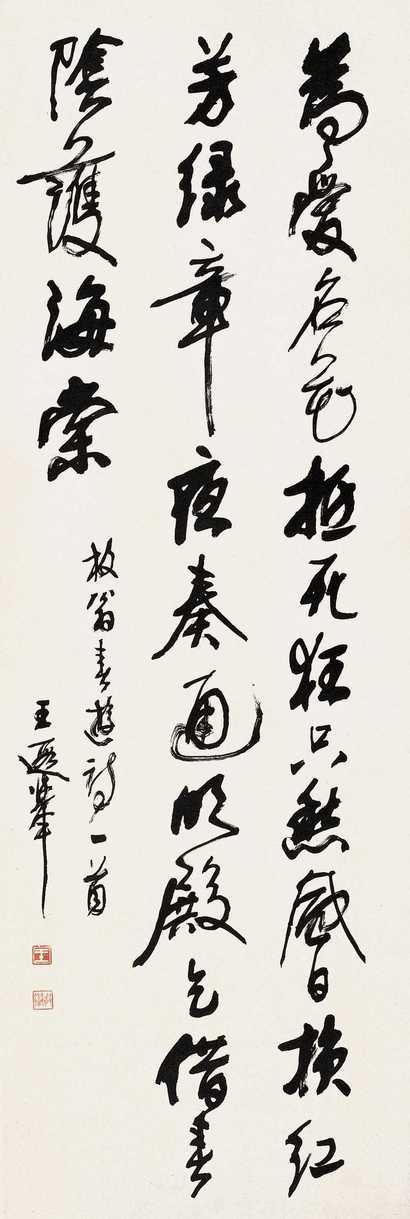 為愛名花抵死狂只愁日損紅
芳綠章夜奏通明殿乞借春
陰護海棠
放翁春遊詩一首
王遐舉